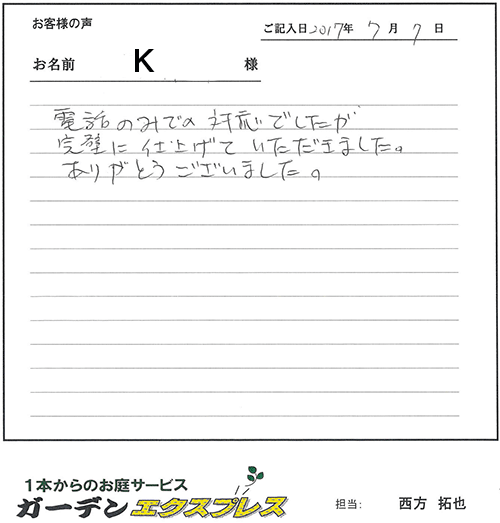 お客様の声
ご記入日 2017年 7月 7日
お名前 K 様
電話のみでの対応でしたが
完璧に仕上げていただきました。
ありがとうございました。
1本からのお庭サービス
ガーデンエクスプレス
担当: 西方 拓也